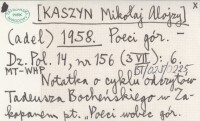 [KASZYN Mikołaj Alojzy]
(adel) 1958. Poeci gór. -
Dz. Pol. 14, nr 156 (3 VII): 6.
MT-WHP
Notatka o cyklu odczytów
Tadeusza Bocheńskiego w Za-
kopanem pt. „Poeci wobec gór.